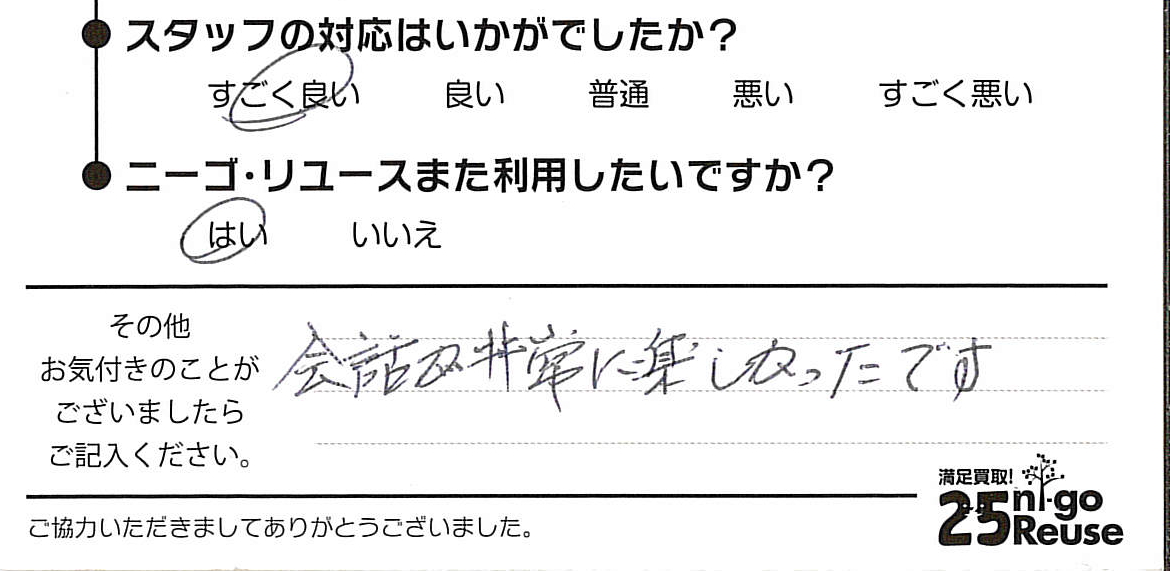 スタッフの対応はいかがでしたか？
すごく良い 良い 普通 悪い すごく悪い
ニーゴ・リユースまた利用したいですか？
はい いいえ
その他
お気付きのことが
ございましたら
ご記入ください。
会話が非常に楽しかったです
満足買取!
25 ni-go
Reuse
ご協力いただきましてありがとうございました。